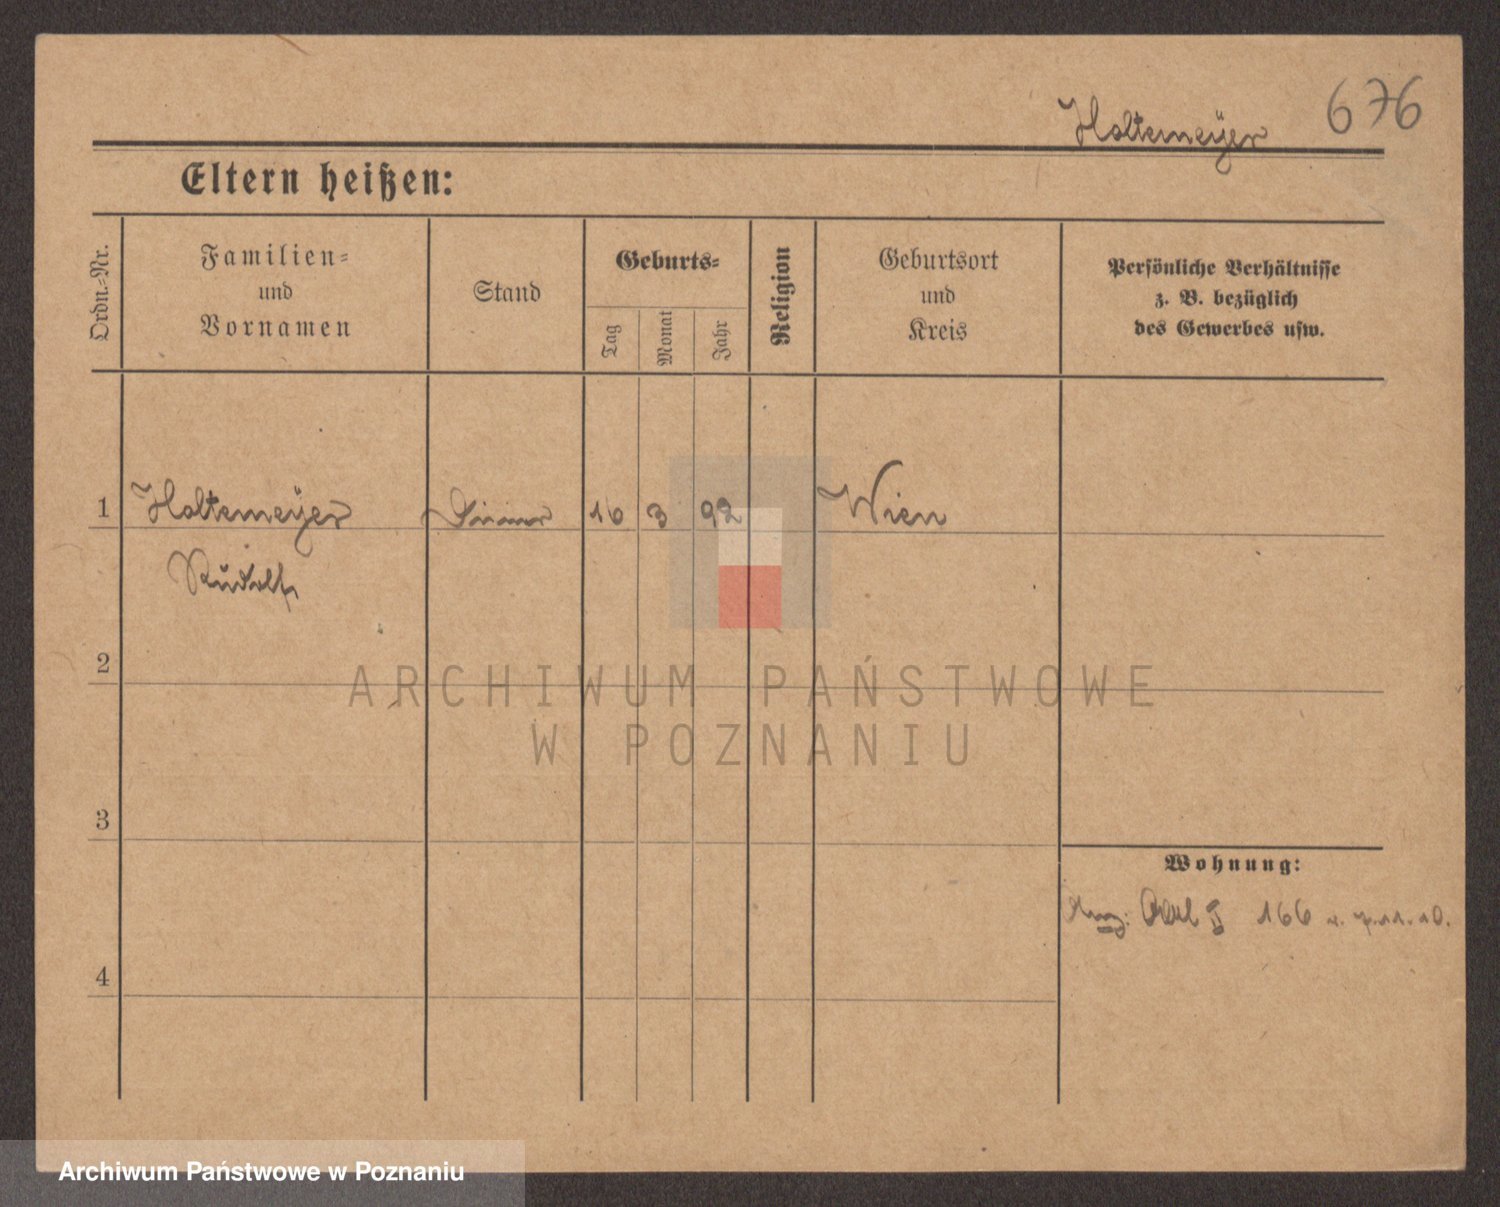 Holtemeÿer 676
Eltern heißen:
Ordn.-Nr.
Familien-
und
Vornamen
Stand
Geburts-
Tag
Monat
Jahr
Religion
Geburtsort
und
Kreis
Persönliche Verhältnisse
z. B. bezüglich
des Gewerbes usw.
1 Holtemeÿer 16 3 92 Wien
Rudolf
2
ARCHIWUM PAŃSTWOWE
W POZNANIU
3
Wohnung:
166
4
Archiwum Państwowe w Poznaniu